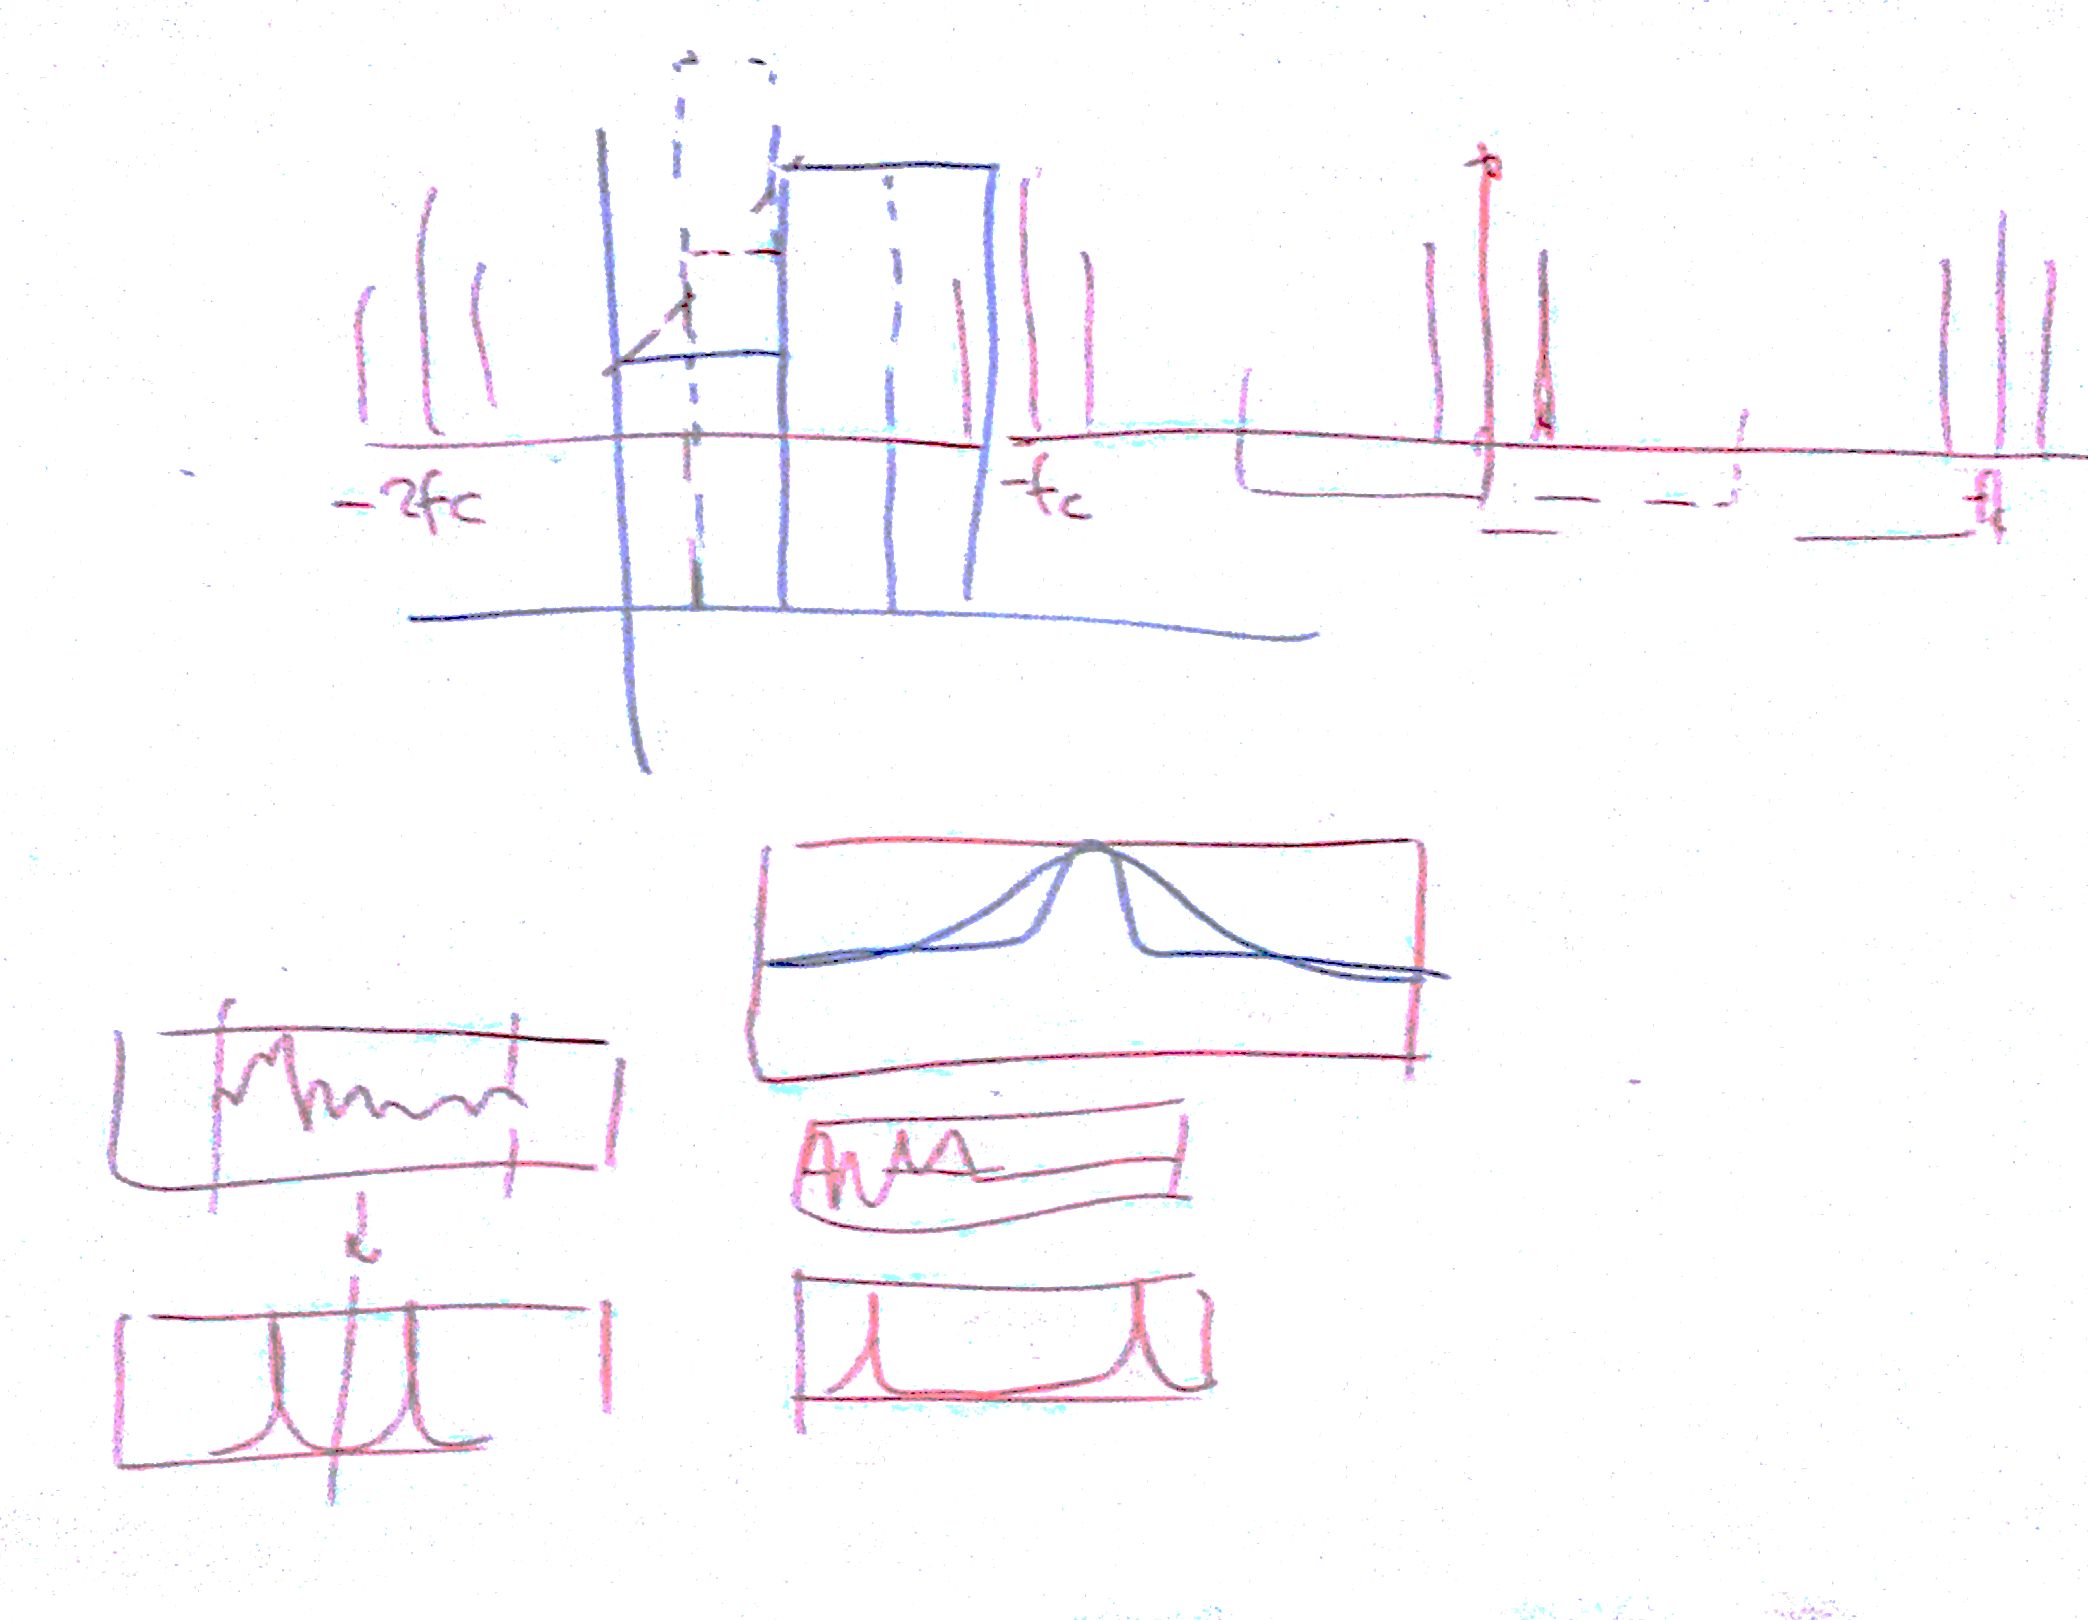 -2fc
-fc